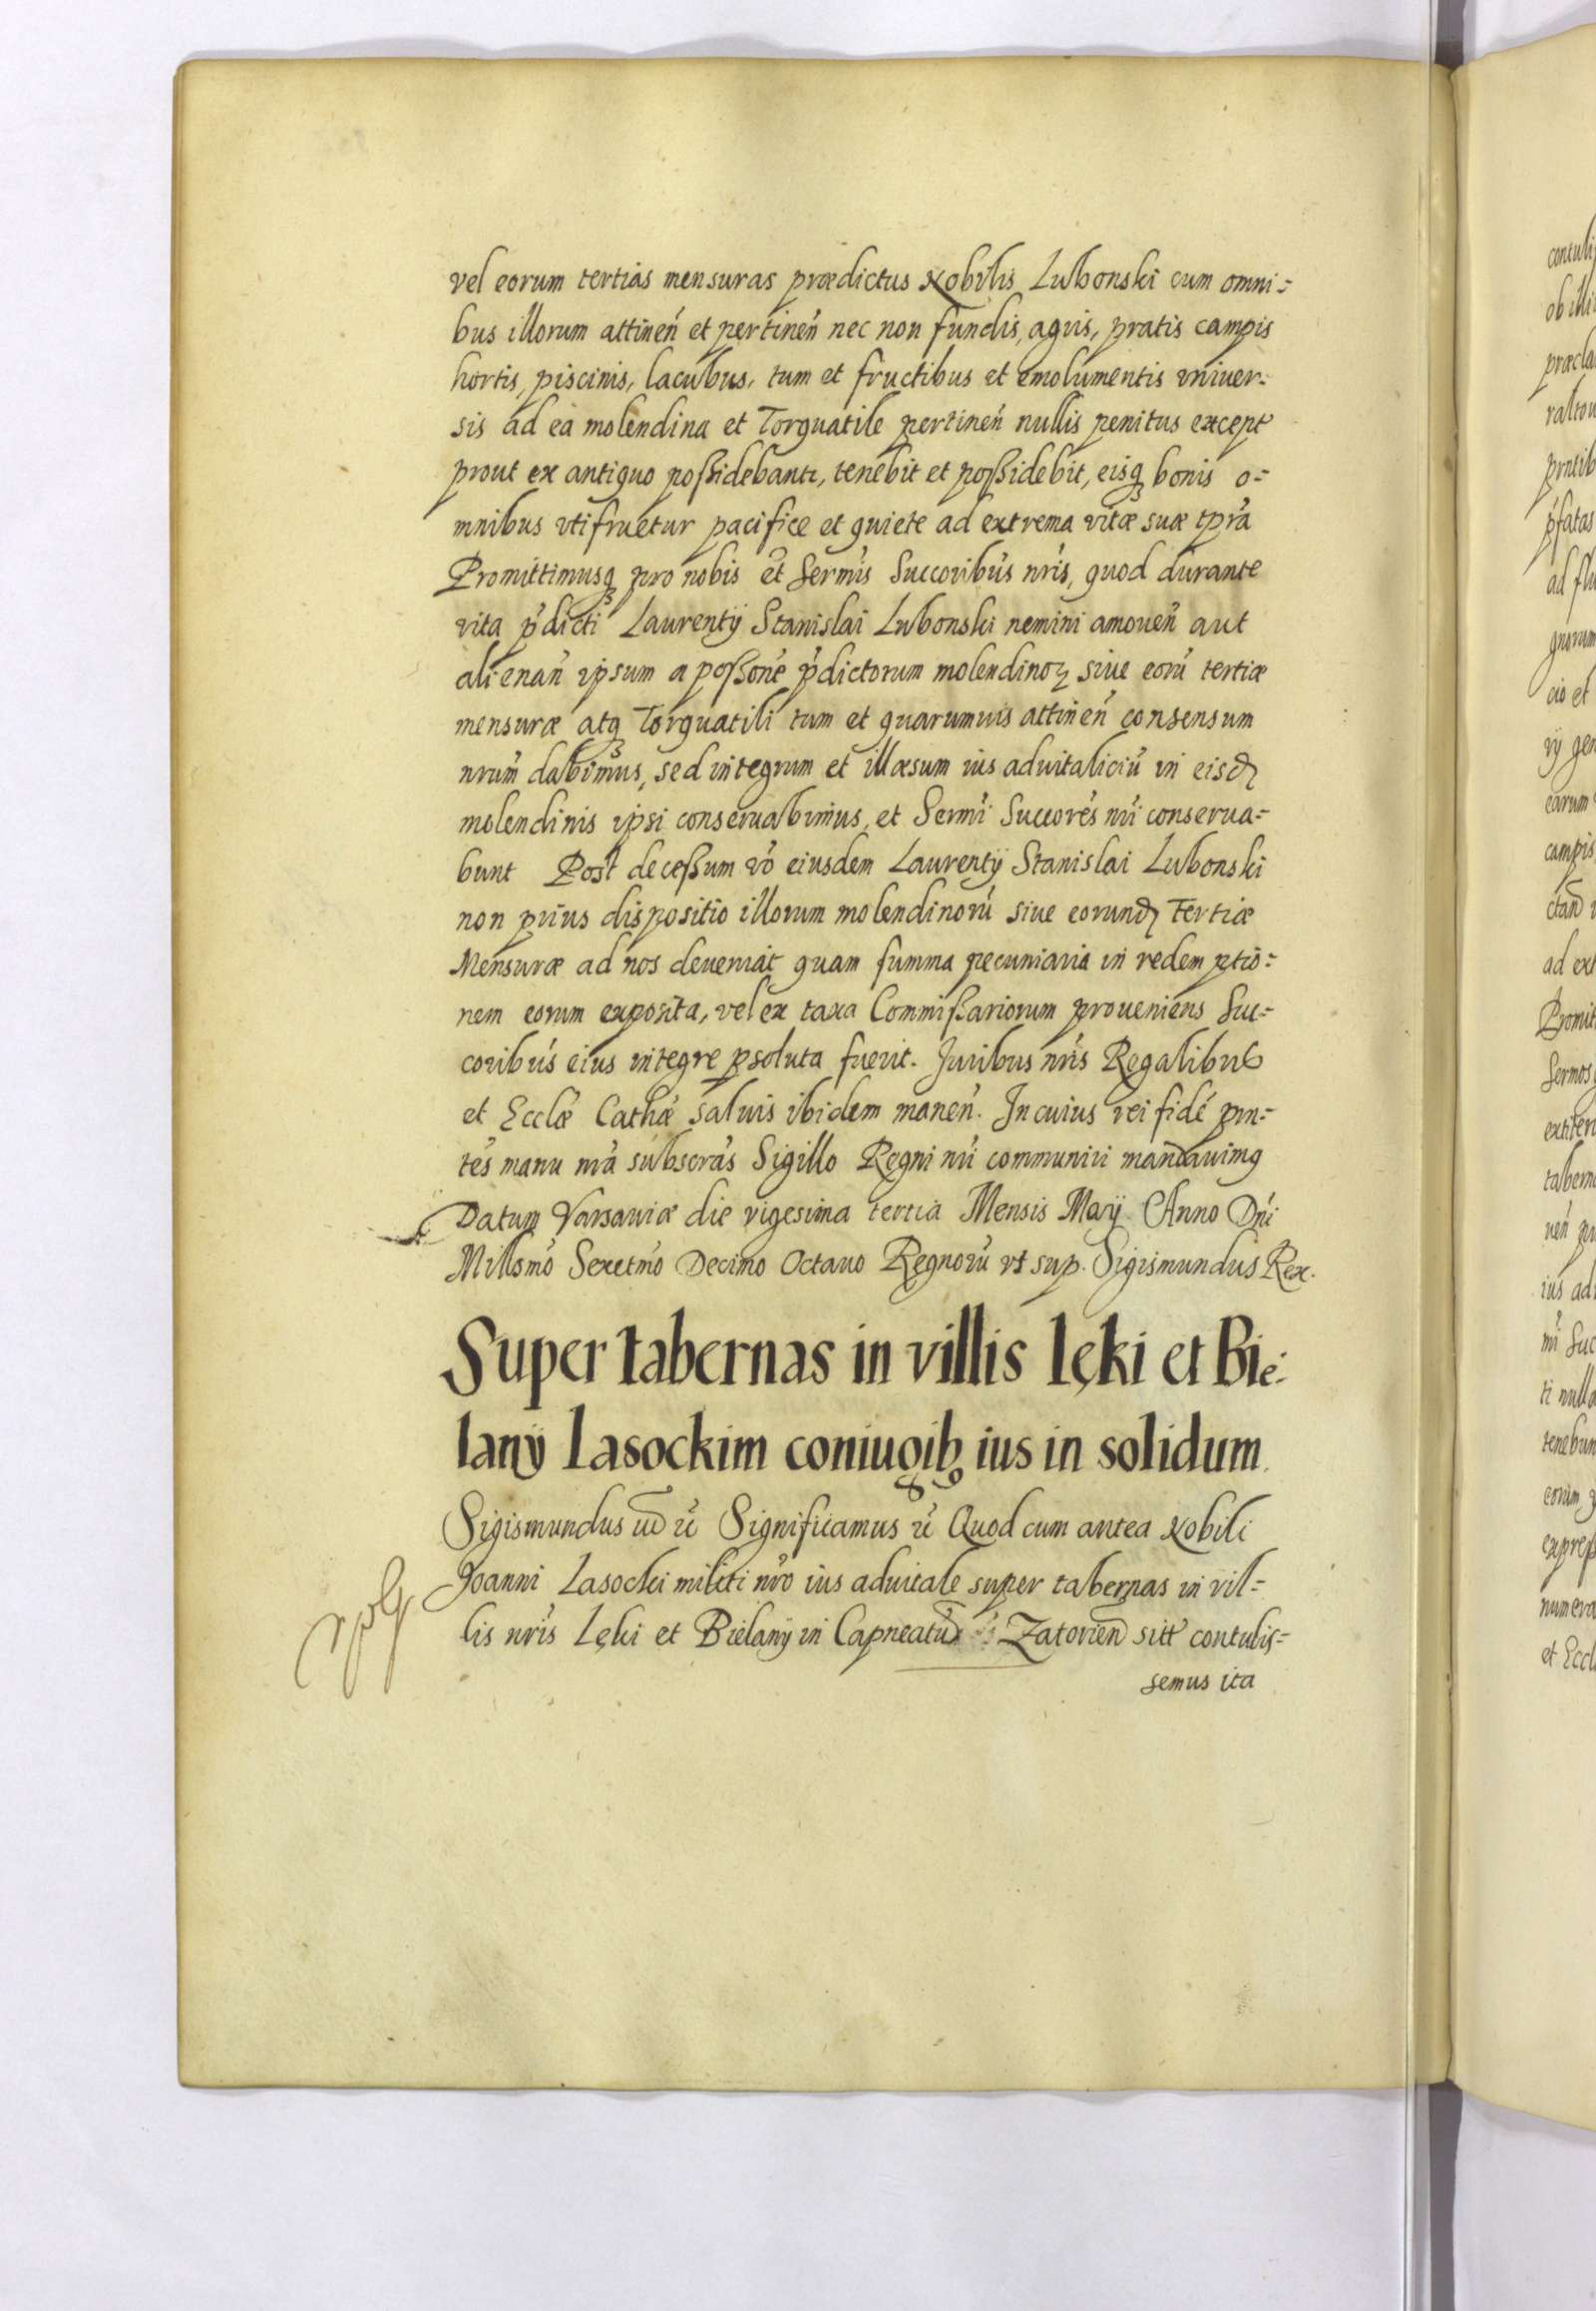 vel eorum tertias mensuras prædictus Nobilis Lubonski cum omni=
bus illorum attineń et pertineń nec non fundis, aquis, pratis campis
hortis, piscinis, lacubus, tum et fructibus et emolumentis vniuer=
sis ad ea molendina et Torquatile pertineń nullis penitus except
prout ex antiquo poßidebantr, tenebit et poßidebit, eisqꝫ bonis o=
mnibus vtifruetur pacifice et quiete ad extrema vitæ suæ tpra
Promittimusqꝫ pro nobis et Sermis Succoribus nris, quod durante
vita pdicti Laurentÿ Stanislai Lubonski nemini amoueń aut
alienań ipsum a poßone pdictorum molendinoꝝ siue eorú tertiæ
mensuræ atqꝫ Torquatili tum et quarumuis attineń consensum
nrum dabimus, sed integrum et illæsum ius aduitaliciú in eisd
molendinis ipsi conseruabimus, et Sermi Succores nri conserua=
bunt Post deceßum vo eiusdem Laurentÿ Stanislai Lubonski
non prius dispositio illorum molendinorú siue eorund Tertiæ
Mensuræ ad nos deueniat quam summa pecuniaria in redemptio=
nem eorum exposita, vel ex taxa Commißariorum proueniens Suc=
coribus eius integre psoluta fuerit. Iuribus nris Regalibus
et Ecclæ Cathæ saluis ibidem maneń. In cuius rei fidé prn=
tes manu nra subscras Sigillo Regni nri communiri mandauimꝯ
Datum Varsauiæ die vigesima tertia Mensis Maÿ Anno Dni
Millsmo Sexctmo Decimo Octauo Regnorú vt sup. Sigismundus Rex.
Super tabernas in villis Lęki et Bie=
lany Lasockim coniugibꝯ ius in solidum.
Sigismundus Significamus Quod cum antea Nobili
Joanni Lasocki militi nro ius aduitale super tabernas in vil=
lis nris Lęki et Bielanÿ in Capneatu Zatorien sitt contulis=
semus ita